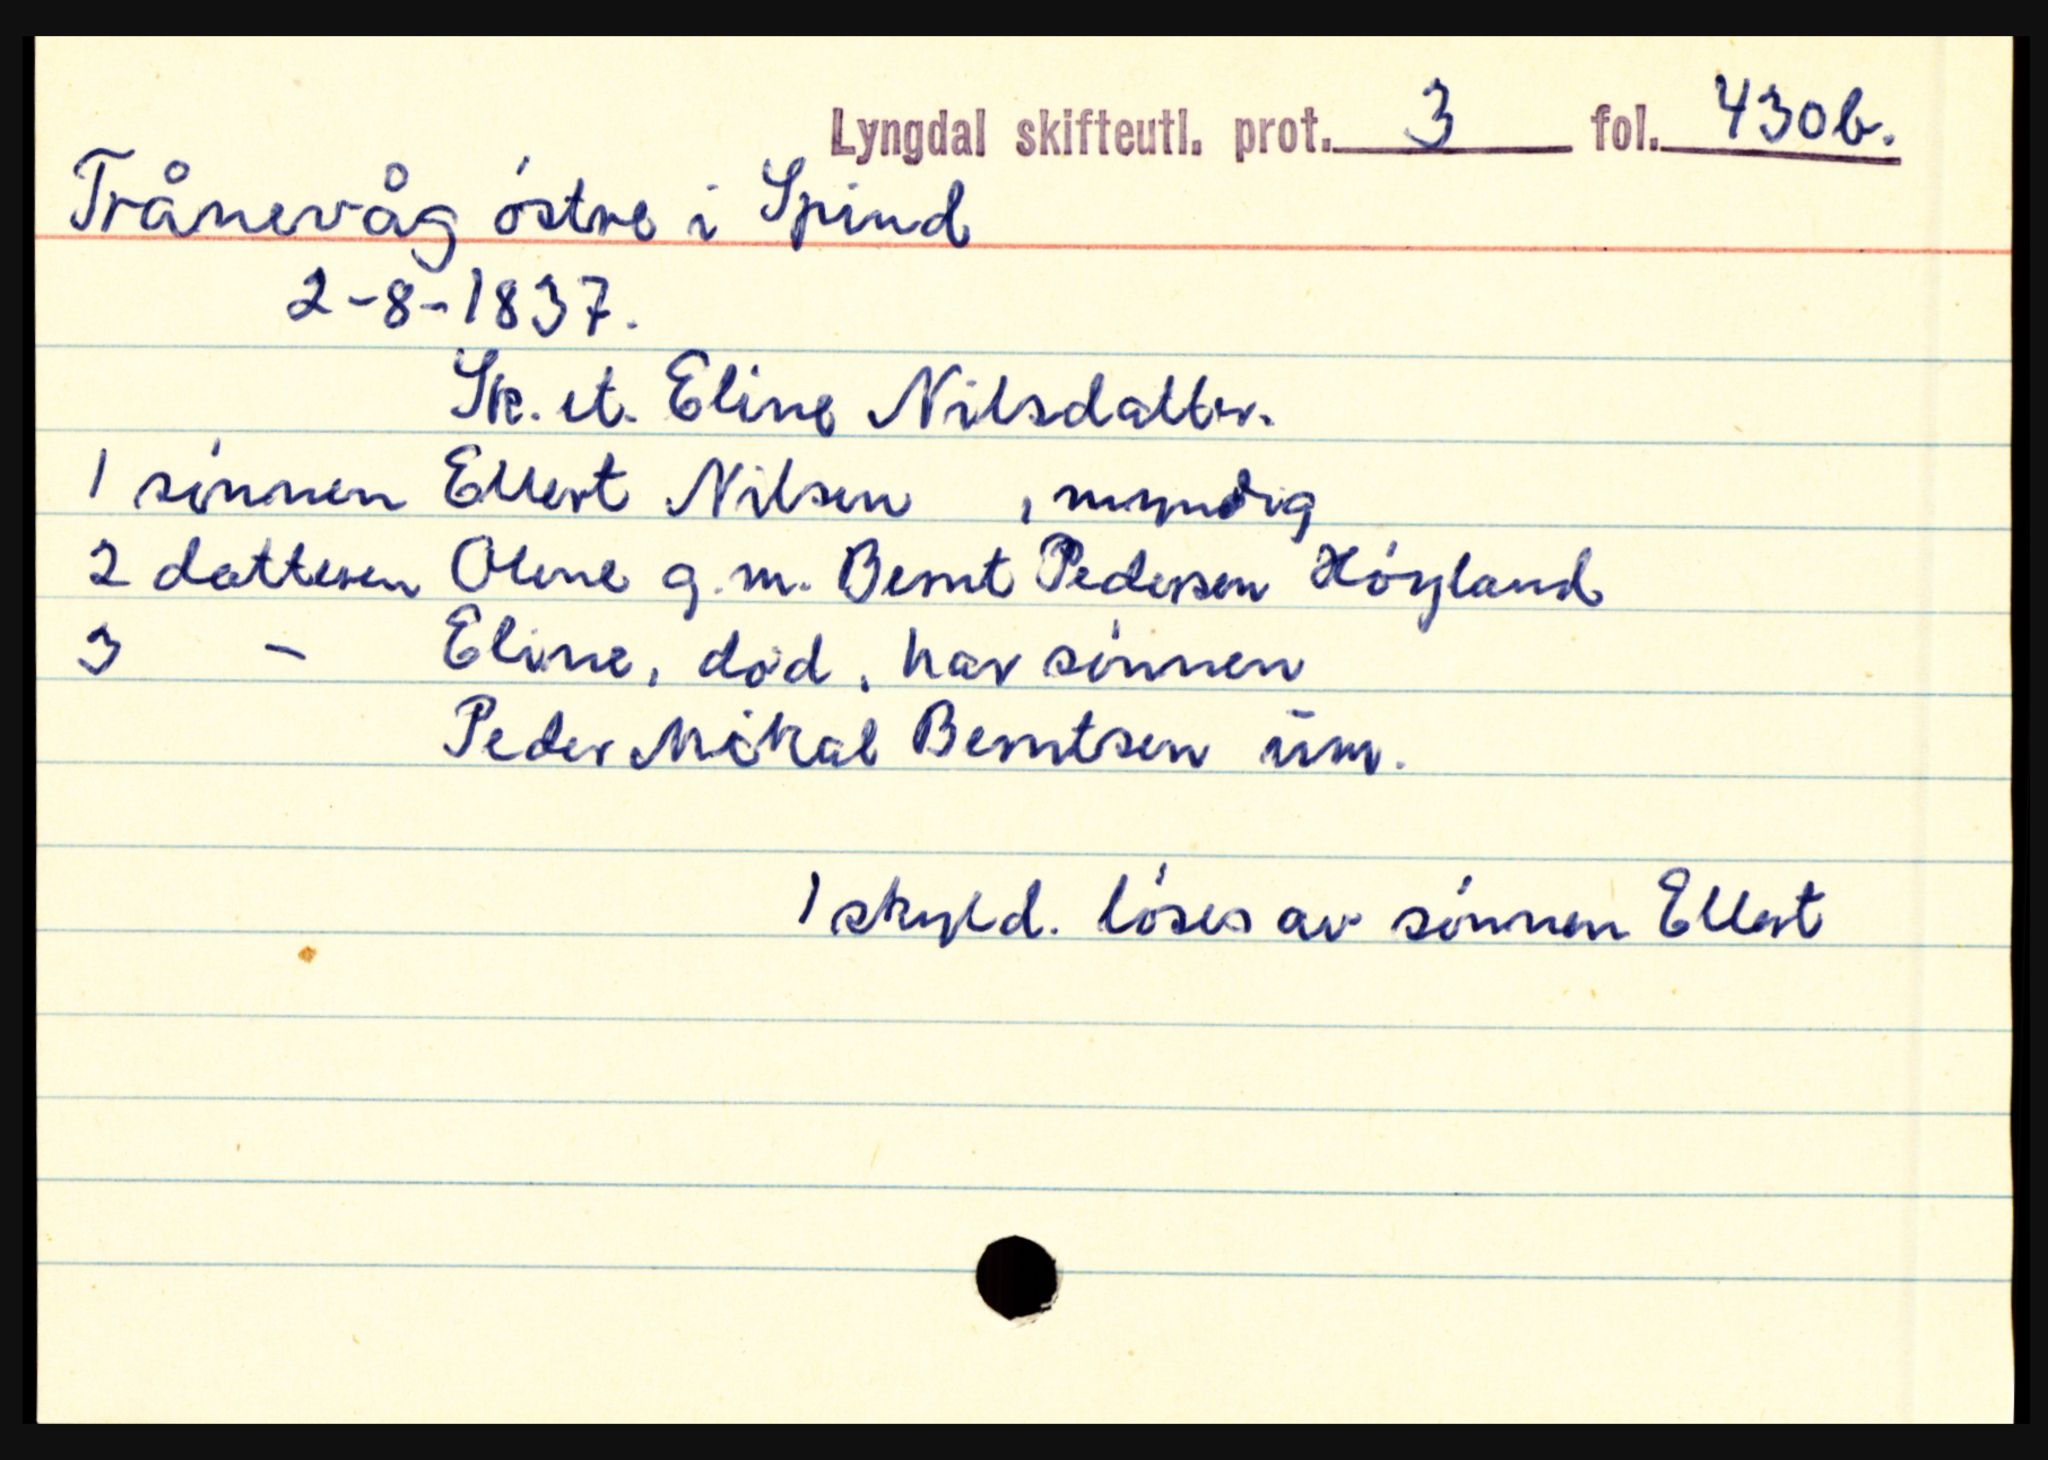 Lyngdal skifteutl. prot. 3 fol. 430b.
Trånevåg östre i Spind
2-8-1837.
Sk. et. Eline Nilsdatter.
1 sönnen Ellert Nilsen , myndig
2 datteren Olene g.m. Bernt Pedersen Höyland
3 - Eline, död, har sönnen
Peder Mikal Berntsen um.
1 skyld. löses av sönnen Ellert